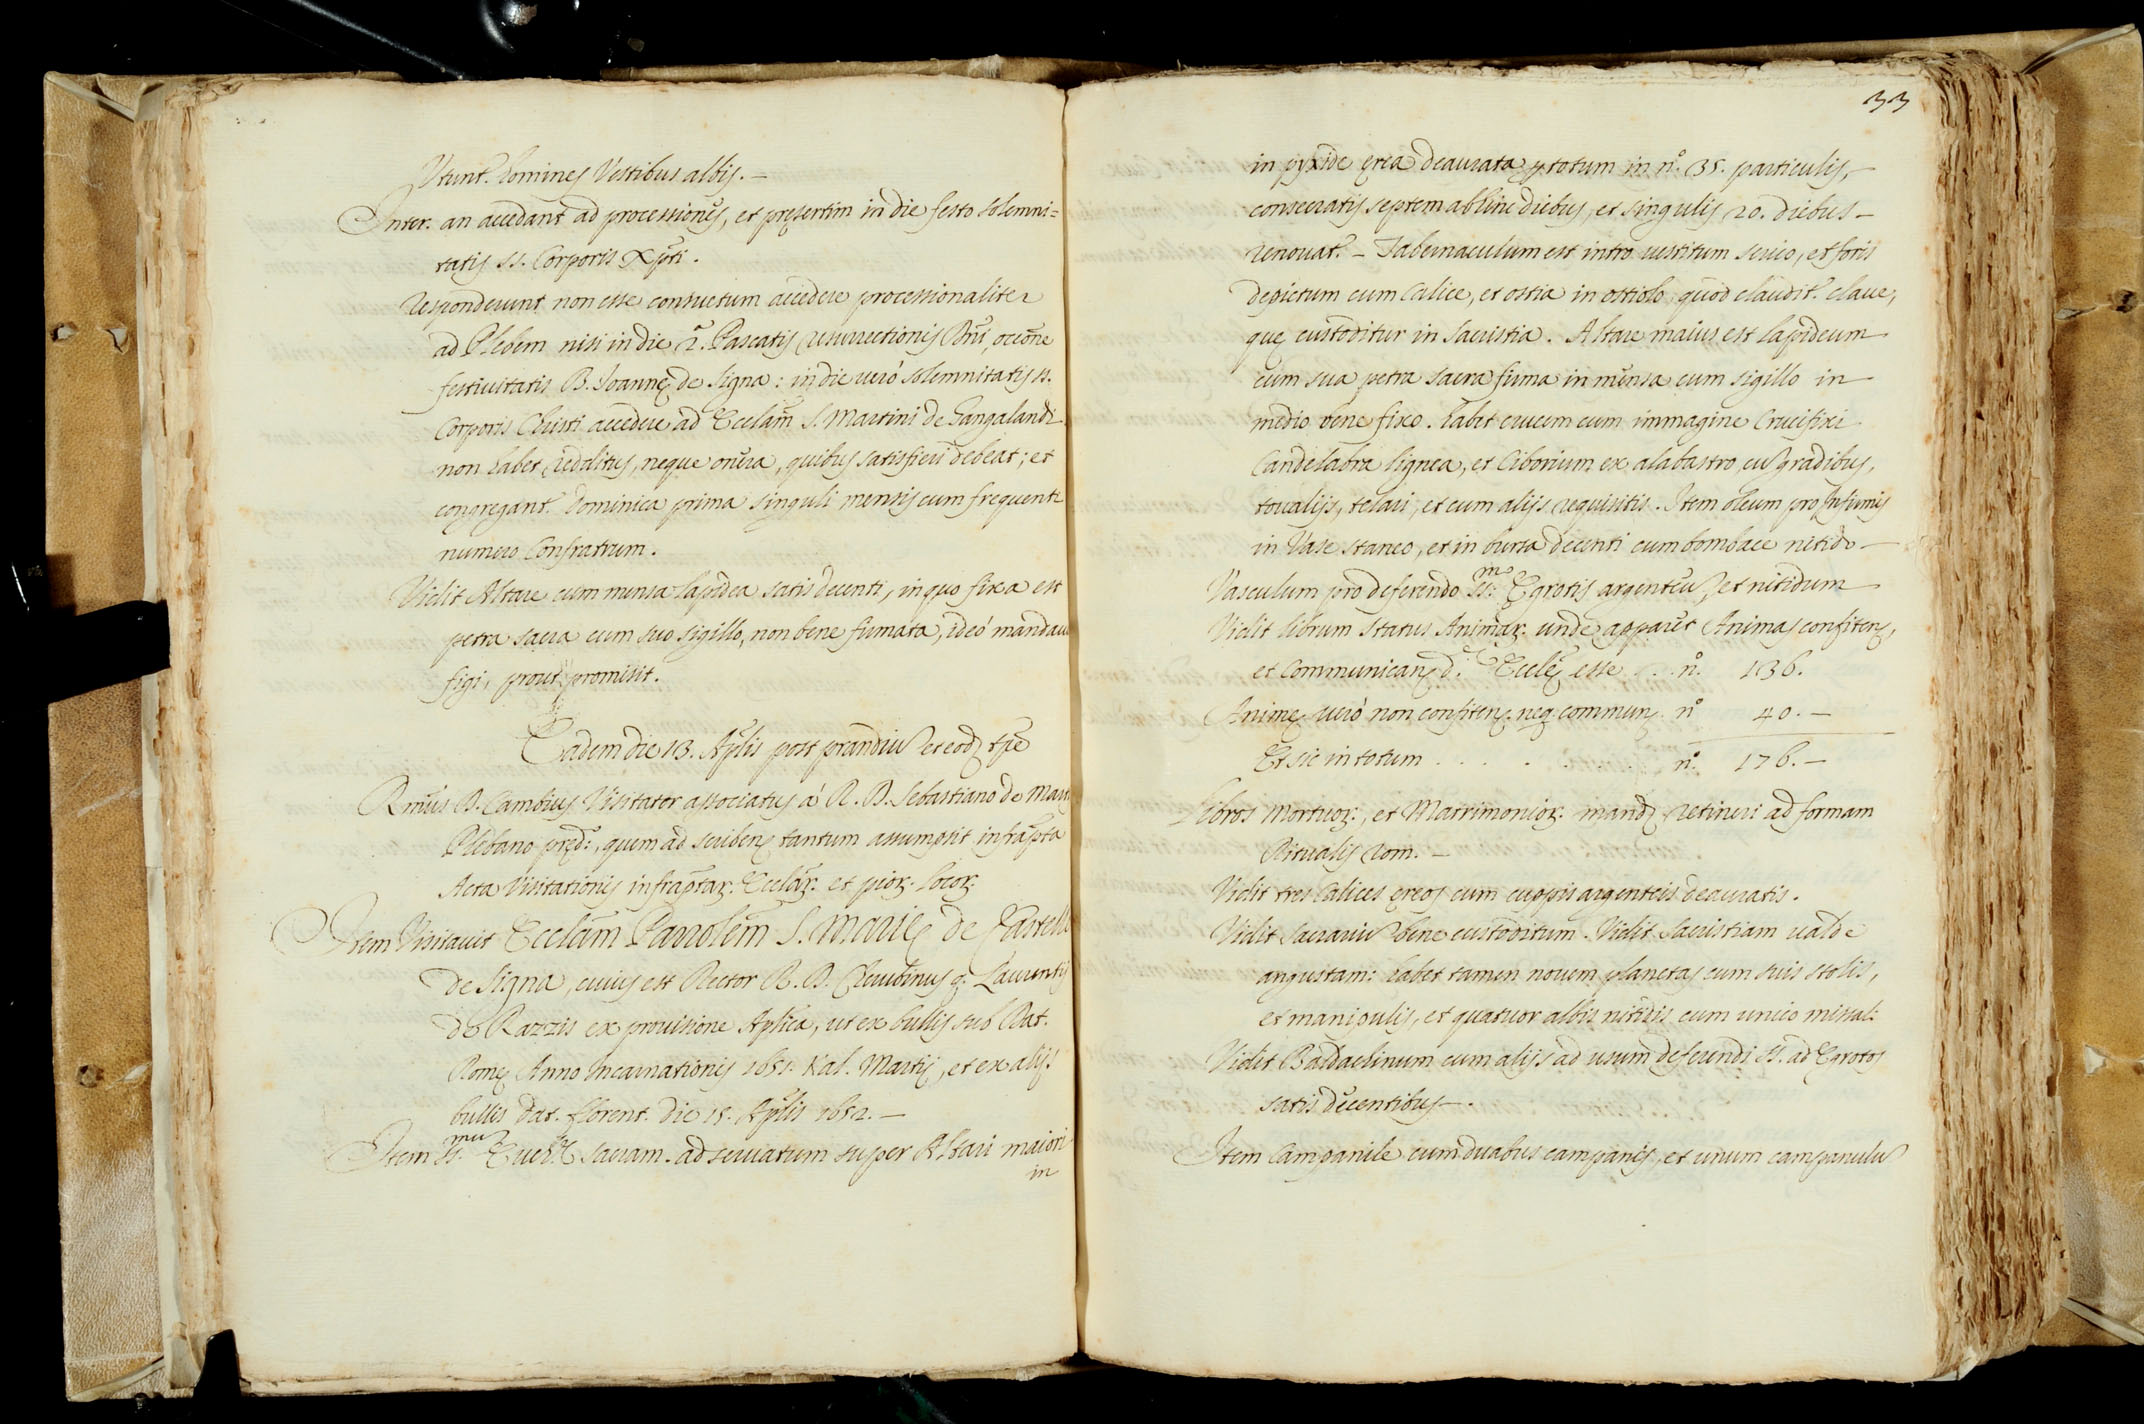 Utunt.r homines Vestibus albis. -
Inter. an accedant ad processiones, et pręsertim in die festo solemni=
tatis SS. Corporis Xpti.
responderunt non esse consuetum accedere processionaliter
ad Plebem nisi in die 2.a Pascatis resurrectionis Dni, occōne
festivitatis B. Joannę de Signa: in die verò solemnitatis SS.
Corporis Christi accedere ad Ecclām S. Martini de Gangalandi
non habet redditus, neque onera, quibus satisfieri debeat; et
congregant.r Dominica prima singuli mensis cum frequenti
numero Confratrum.
Vidit Altare cum mensa lapidea satis decenti, in quo fixa est
petra sacra cum suo sigillo, non bene firmata, ideò mandavit
figi, prout promisit.
Eadem die 13. Aplis post prandiū et eod. tpe
R.mus D. Cambius Visitator associatus à R. D. Sebastiano de
Plebano pręd.o, quem ad scribenᵈ tantum assumpsit infrapta
Acta Visitationis infraptar. Ecclār. et pior. locor.
Item Visitavit Ecclām Parrolem S. Marię de Castello
de Signa, cuius est Rector R. D. Cherubinus q. Laurentij
de Razzis ex provisione Aplica, ut ex bullis sub Dat.
Romę Anno Incarnationis 1651. Kal. Martij, et ex alijs
bullis dat. florent. die 15. Aplis 1652. -
Item SS.mū Euch.e sacram. adservatum super Altari maiori
in
33
in pyxide ęrea deaurata p totum in n.o 35. particulis,
consecratis septem abhinc diebus, et singulis 20. diebus -
renovat.r - Tabernaculum est intro vestitum serico, et foris
depictum cum Calice, et ostia in ostiolo, quod claudit.r clave,
quę custoditur in Sacristia. Altare maius est lapideum
cum sua petra sacra firma in mensa cum sigillo in
medio bene fixo. habet crucem cum immagine Crucifixi
Candelabra lignea, et Ciborium ex alabastro, cū gradibus,
tovalijs, telari, et cum alijs requisitis. Item oleum pro Infirmis
in Vase staneo, et in bursa decenti cum bombace nitido -
Vasculum pro deferendo SS.m Egrotis argenteū, et nitidum
Vidit librum Status Animar. unde apparet Animas confiten.,
et Communican. d.e Ecclę esse . . n.o 136.
Animę verò non confiten. neq. commun. n.o 40. -
Et sic in totum . . . . . . n.o 176. -
Libros Mortuor., et Matrimonior. mand. retineri ad formam
Ritualis rom. -
Vidit tres Calices ęreos cum cuppis argenteis deauratis.
Vidit Sacrariū bene custoditum. Vidit Sacristiam valde
angustam: habet tamen novem planetas cum suis stolis,
et manipulis, et quatuor albis nitidis cum unico missali
Vidit Baldachinum cum alijs ad usum deferendi SS. ad Egrotos
satis decentibus -.
Item Campanile cum duabus campanis, et unum campanulū